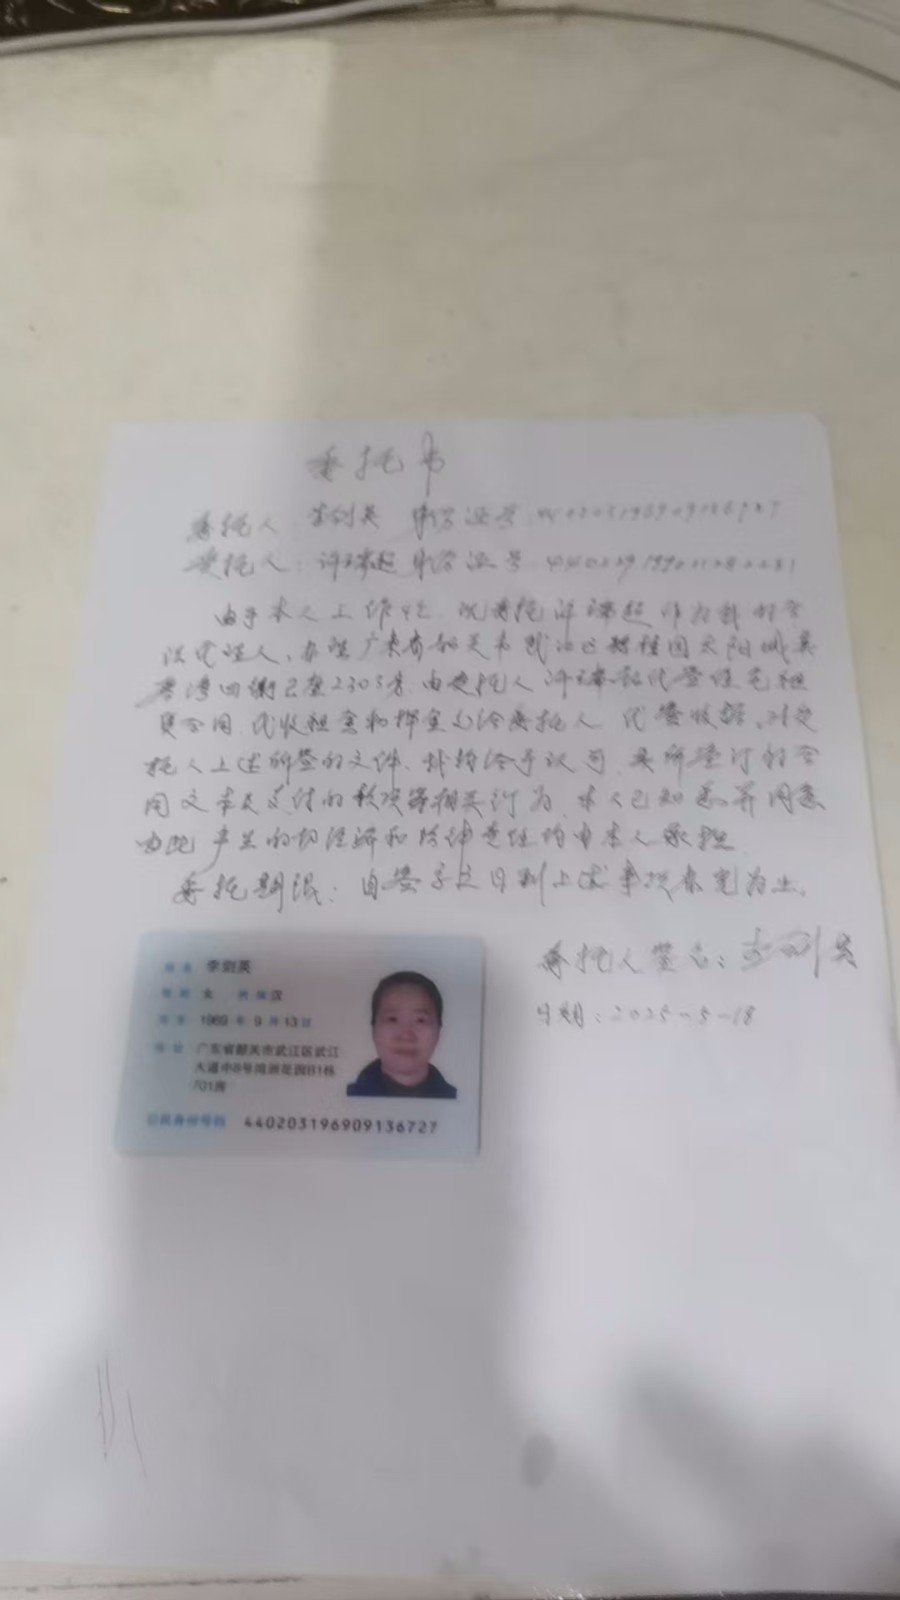 委托书
委托人 李剑英 身份证号
受托人：许瑞超 身份证号
由于本人工作忙，现委托许瑞超作为我的合
法代理人，办理广东省韶关市武江区碧桂园太阳城
2座2303房，由受托人许瑞超代签住宅租
赁合同，代收租金和押金交给委托人，代签收据，对受
托人上述所签的文件，我均给予认可，其所签订的合
同文本及支付的款项等相关行为，本人已知悉并同意
由此产生的切经济和法律责任均由本人承担
委托期限：自签字之日到上述事项办完为止。
委托人签名：李剑英
日期：2025-5-18
姓名 李剑英
性别 女 民族 汉
出生 1969 年 9 月 13 日
住址 广东省韶关市武江区武江
大道中8号鸿洲花园B1栋
701房
公民身份号码 440203196909136727